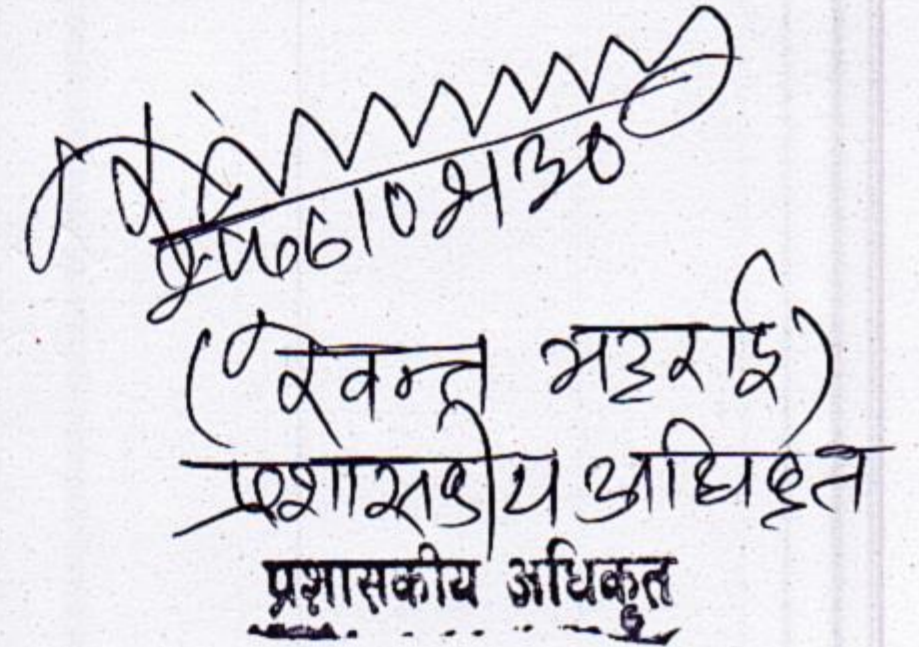 (रेवन्त भट्टराई)
प्रशासकीय अधिकृत
प्रशासकीय अधिकृत